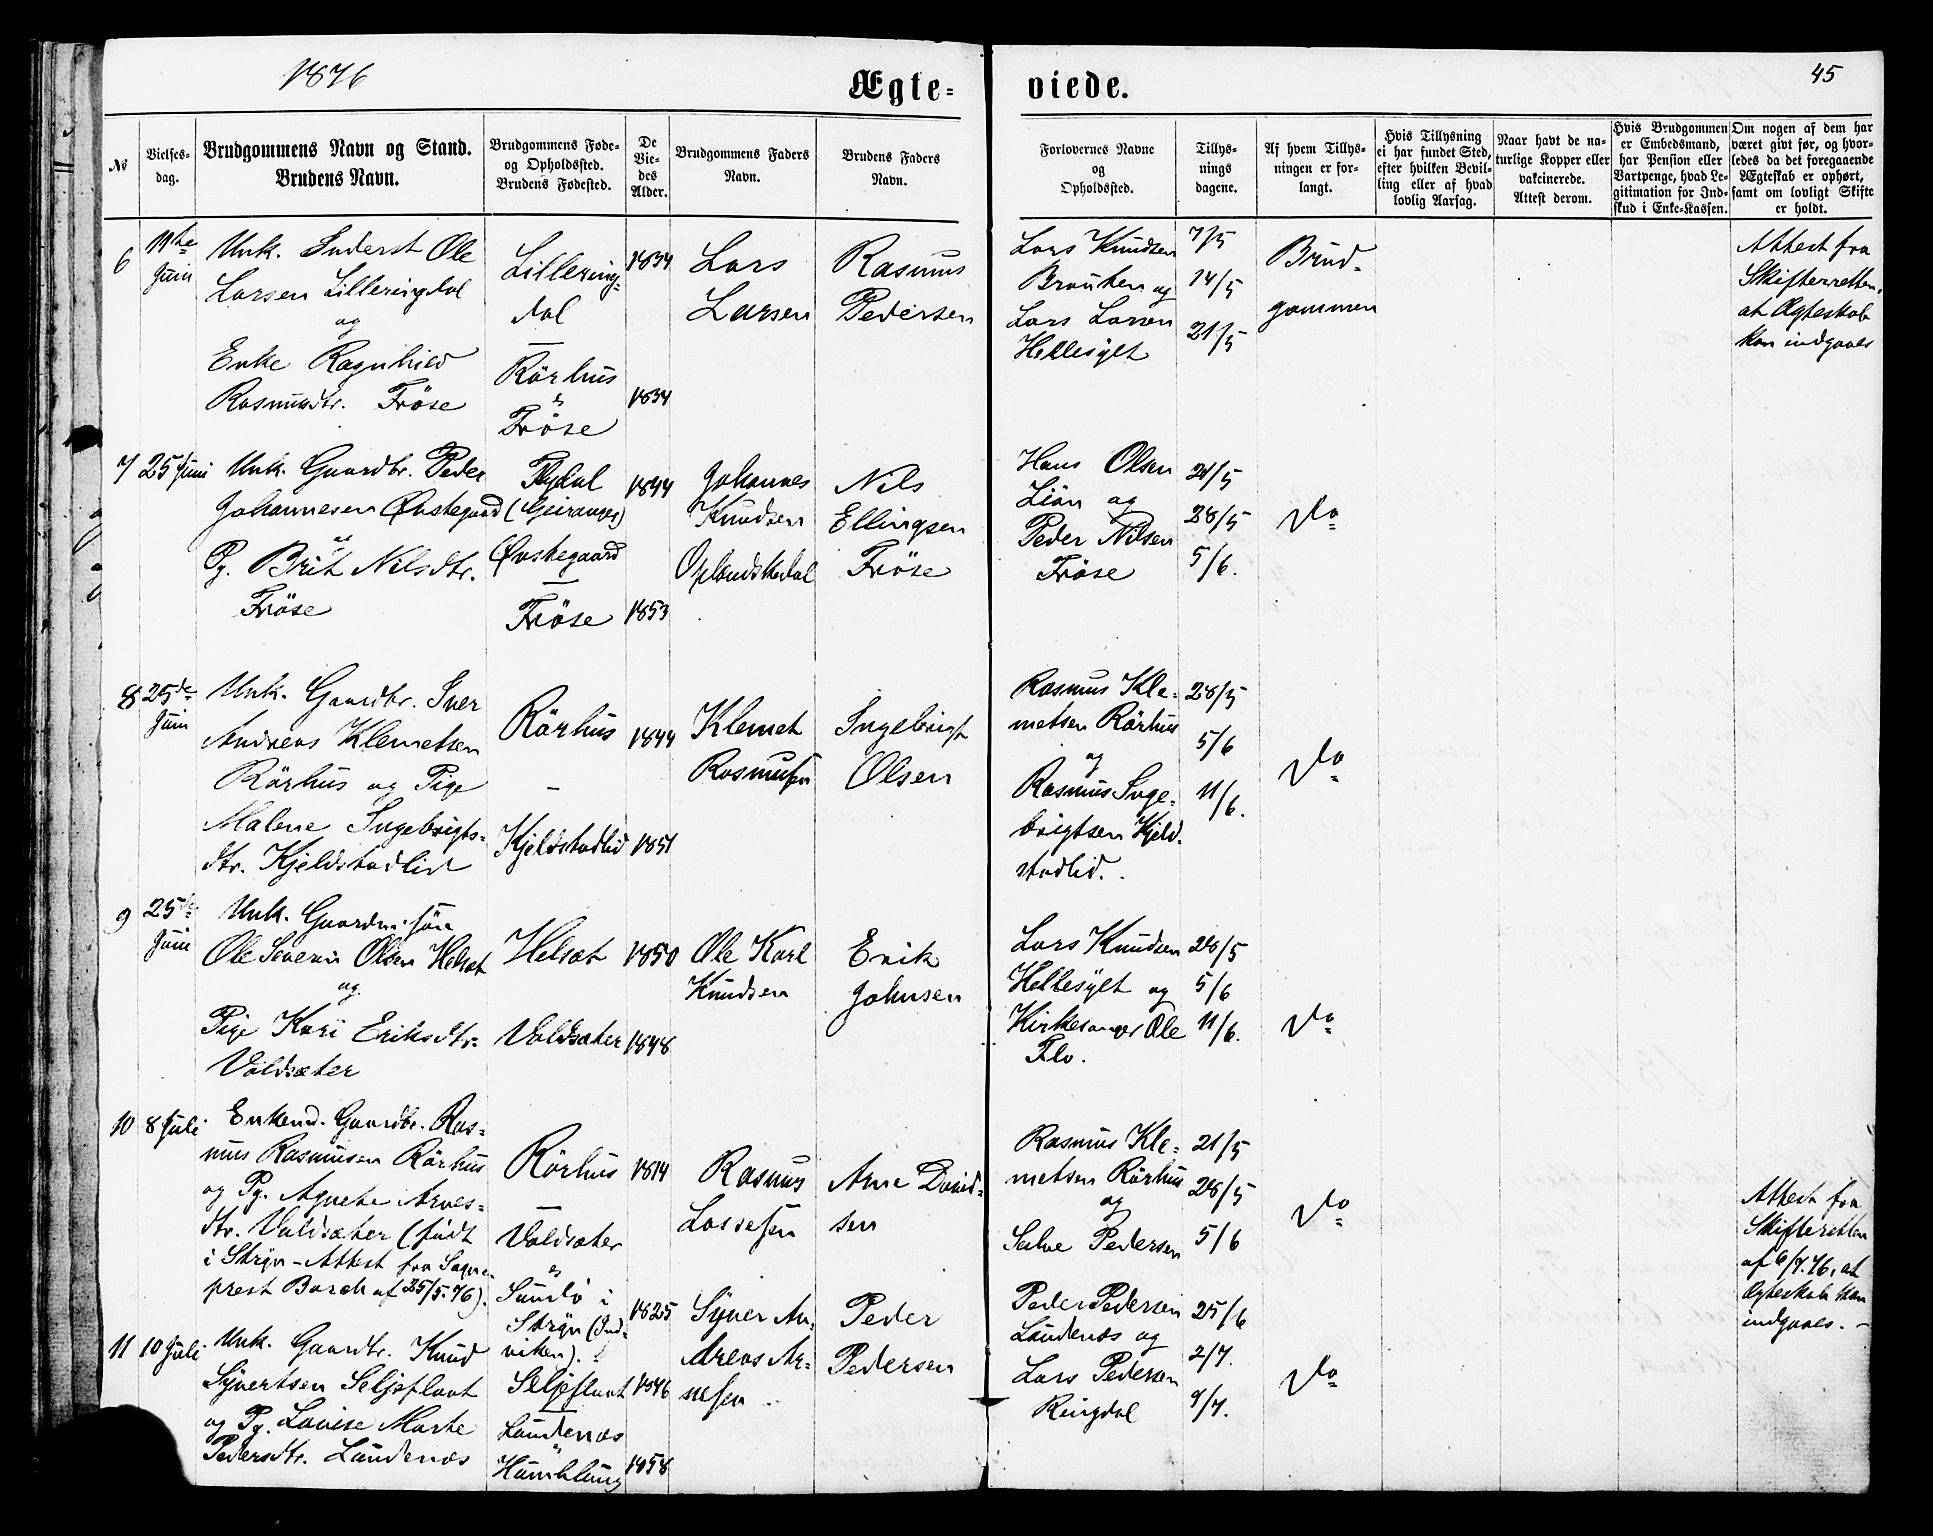 1876
Ægte-
viede.
45
No
Vielses-
dag.
Brudgommens Navn og Stand.
Brudens Navn.
Brudgommens Føde-
og Opholdssted.
Brudens Fødested.
De
Vie-
des
Alder.
Brudgommens Faders
Navn.
Brudens Faders
Navn.
Forlovernes Navne
og
Opholdssted.
Tillys-
nings
dagene.
Af hvem Tillys-
ningen er for-
langt.
Hvis Tillysning
ei har fundet Sted,
efter hvilken Bevil-
ling eller af hvad
lovlig Aarsag.
Naar havt de na-
turlige Kopper eller
vakcinerede.
Attest derom.
Hvis Brudgommen
er Embedsmand,
har Pension eller
Vartpenge, hvad Le-
gitimation for Ind-
skud i Enke-Kassen.
Om nogen af dem har
været givt før, og hvor-
ledes da det foregaaende
Ægteskab er ophørt,
samt om lovligt Skifte
er holdt.
6
11te
Juni
Unk. Inderst Ole
Larsen Lilleringdal
og
Enke Ragnhild
Rasmusdtr. Fröse
Lillering-
dal
Rörhus
Fröse
1834
1834
Lars
Larsen
Rasmus
Pedersen
Lars Knudsen
og
Lars Larsen
Hellesylt
7/5
14/5
21/5
Brud-
gommen
Attest fra
Skifteretten,
at Ægteskab
kan indgaaes
7
25 Juni
Unk. Gaardbr. Peder
Johannesen Øvstegaard
og
Pg. Brit Nilsdtr.
Fröse
(Geiranger)
Øvstegaard
Fröse
1844
1853
Johannes
Knudsen
Oplandskedal
Nils
Ellingsen
Fröse
Hans Olsen
Lién og
Peder Nilsen
Fröse
21/5
28/5
5/6.
Do
8
25de
Juni
Unk. Gaardbr. Iver
Andreas Klemetsen
Rörhus og Pige
Malene Ingebrigts-
dtr. Kjeldstadlid
Rörhus
Kjeldstadlid
1844
1851
Klemet
Rasmusen
Ingebrigt
Olsen
Rasmus Kle-
metsen Rörhus
og
Rasmus Inge-
brigtsen Kjeld-
stadlid.
28/5
5/6
11/6.
Do
9
25de
Juni
Unk.
Ole Severin Olsen Helsæt
og
Pige Kari Eriksdtr.
Voldsæter
Helsæt
Voldsæter
1850
1848
Ole Karl
Knudsen
Erik
Johnsen
Lars Knudsen
Hellesylt og
Kirkesanger Ole
Flo.
28/5
5/6
11/6.
Do
10
8 Juli
Enkem. Gaardbr. Ras-
mus Rasmusen Rörhus
og Pg. Agnete Arnes-
dtr. Voldsæter (født
i Stryn - Attest fra Sogne-
prest Barch af 25/5.76).
Rörhus
Voldsæter
Sundö i
Stryn (Ind-
viken).
1814
1825
Rasmus
Lassesen
Arne David-
sen
Rasmus Kle-
metsen Rörhus
og
Salve Pedersen
21/5
28/5
5/6
Do
Attest fra
Skifteretten
af 6/7.76, at
Ægteskab kan
indgaaes. -
11
10 Juli
Unk. Gaardbr. Knud
Syvertsen Seljeflaat
og Pg. Lovise Marte
Pedersdtr. Landenæs
Seljeflaat
Landenæs
Humblung
1846
1858
Syver An-
dreas Ar-
nesen
Peder
Pedersen
Peder Pedersen
Landenæs og
Lars Pedersen
Ringdal
25/6
2/7.
9/7.
Do